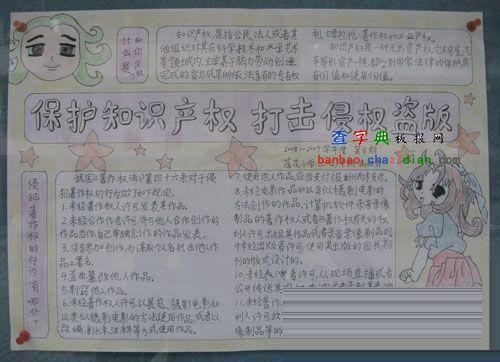 什么是知识产权
知识产权,是指公民、法人或者其
他组织对其在科学技术和文学艺术
等领域内,主要基于脑力劳动创造
完成的智力成果所依法享有的专有权
利,主要包括著作权和工业产权。
知识产权是一种无形资产权,它与房屋、汽
车等形资产一样,都受到国家法律的保护,具
有价值和使用价值。
保护知识产权 打击侵权盗版
2008—2009学年度
查字典板报网
banbao.chazidian.com
侵犯著作权的行为有哪些?
我国《著作权法》第四十六条对于侵
犯著作权的行为做了如下规定。
1.未经著作权人许可发表其作品。
2.未经合作作者许可,将与他人合作创作的
作品当作自己单独创作的作品发表。
3.没有参加创作,为谋取个人名利,在他人作
品上署名。
4.歪曲、篡改他人作品。
5.剽窃他人作品。
6.未经著作权人许可,以展览、摄制电影和
以类似摄制电影的方法使用作品,或者以
改编、翻译、注释等方式使用作品。
7.使用他人作品,应当支付报酬而未支付。
8.未经电影作品和以类似摄制电影的
方法创作的作品、计算机软件、录音录像
制品的著作权人或者与著作权有关的权
利人许可,出租其作品或者录音录像制品的
9.未经出版者许可,使用其出版的图书、期
刊的版式设计的。
10.未经表演者许可,从现场直播或者
公开传送其现
11.未经著作
刊人许可
像制品等的